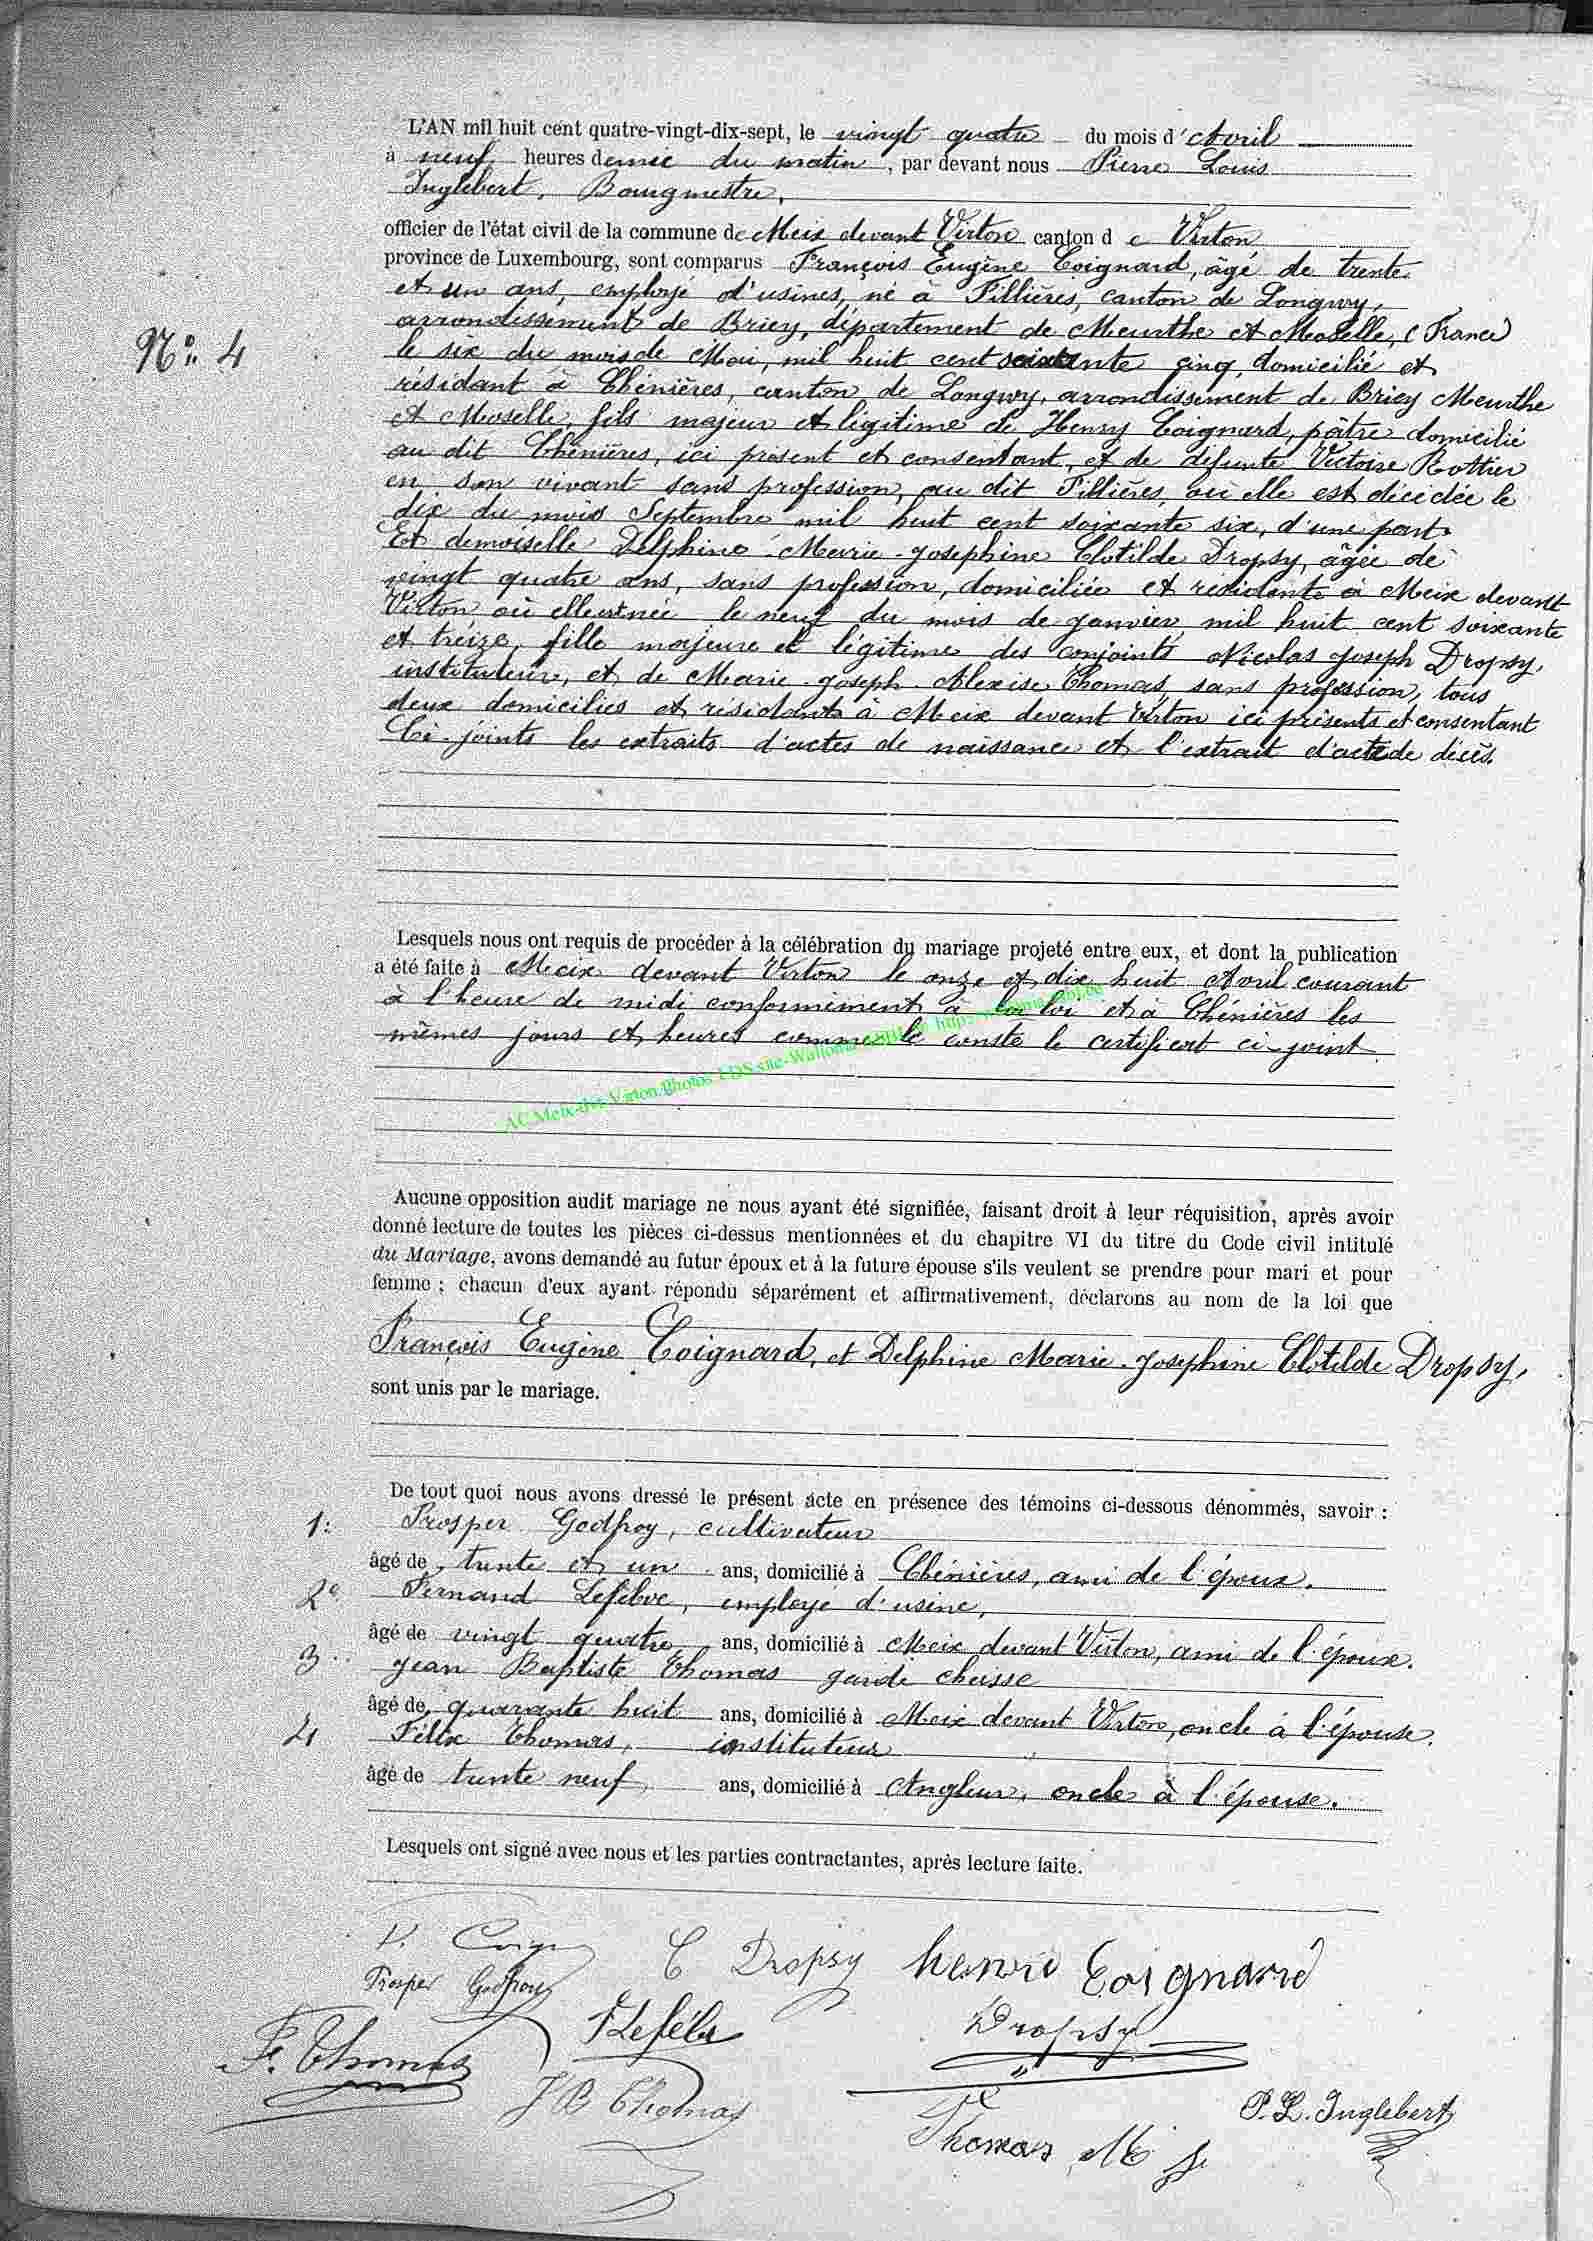 L'AN mil huit cent quatre-vingt-dix-sept, le vingt quatre du mois d'Avril
à neuf heures demie du matin, par devant nous Pierre Louis
Inglebert, Bourgmestre,
officier de l'état civil de la commune de Meix devant Virton canton d e Virton
province de Luxembourg, sont comparus François Eugène Coignard, âgé de trente
et un ans, employé d'usines, né à Fillières, canton de Longwy,
arrondissement de Briey, département de Meurthe et Moselle, (France)
N° 4
le six du mois de Mai, mil huit cent soixante cinq, domicilié et
résidant à Chénières, canton de Longwy, arrondissement de Briey Meurthe
et Moselle, fils majeur et légitime de Henry Coignard, pâtre domicilié
au dit Chénières, ici présent et consentant, et de défunte Victoire Rottier
en son vivant sans profession, au dit Fillières, où elle est décédée le
dix du mois Septembre mil huit cent soixante six, d'une part.
Et demoiselle Delphine Marie-Josephine Clotilde Dropsy, âgée de
vingt quatre ans, sans profession, domiciliée et résidante à Meix devant
Virton où elle est née le neuf du mois de Janvier mil huit cent soixante
et treize, fille majeure et légitime des conjoints Nicolas Joseph Dropsy,
instituteur, et de Marie-Joseph-Alexise Thomas, sans profession, tous
deux domiciliés et résidants à Meix devant Virton ici présents et consentant
Ci-joints les extraits d'actes de naissance et l'extrait d'acte de décès.
Lesquels nous ont requis de procéder à la célébration du mariage projeté entre eux, et dont la publication
a été faite à Meix devant Virton le onze et dix huit Avril courant
à l'heure de midi conformément à la loi et à Chénières les
mêmes jours et heures comme le conste le certificat ci-joint
AC Meix-dvt-Virton Photos
Aucune opposition audit mariage ne nous ayant été signifiée, faisant droit à leur réquisition, après avoir
donné lecture de toutes les pièces ci-dessus mentionnées et du chapitre VI du titre du Code civil intitulé
du Mariage, avons demandé au futur époux et à la future épouse s'ils veulent se prendre pour mari et pour
femme ; chacun d'eux ayant répondu séparément et affirmativement, déclarons au nom de la loi que
François Eugène Coignard, et Delphine Marie-Josephine Clotilde Dropsy,
sont unis par le mariage.
De tout quoi nous avons dressé le présent acte en présence des témoins ci-dessous dénommés, savoir :
1: Prosper Godfroy, cultivateur
âgé de trente et un ans, domicilié à Chénières, ami de l'époux.
2° Fernand Lefébvre, employé d'usine,
âgé de vingt quatre ans, domicilié à Meix devant Virton, ami de l'époux.
3 Jean Baptiste Thomas garde chasse
âgé de quarante huit ans, domicilié à Meix devant Virton, oncle à l'épouse.
4 Félix Thomas, instituteur
âgé de trente neuf ans, domicilié à Angleur, oncle à l'épouse.
Lesquels ont signé avec nous et les parties contractantes, après lecture faite.
C Dropsy henri Coignard
Prosper Godfroy
Dropsy
F. Thomas
J B Thomas
P. L. Inglebert
Thomas M J